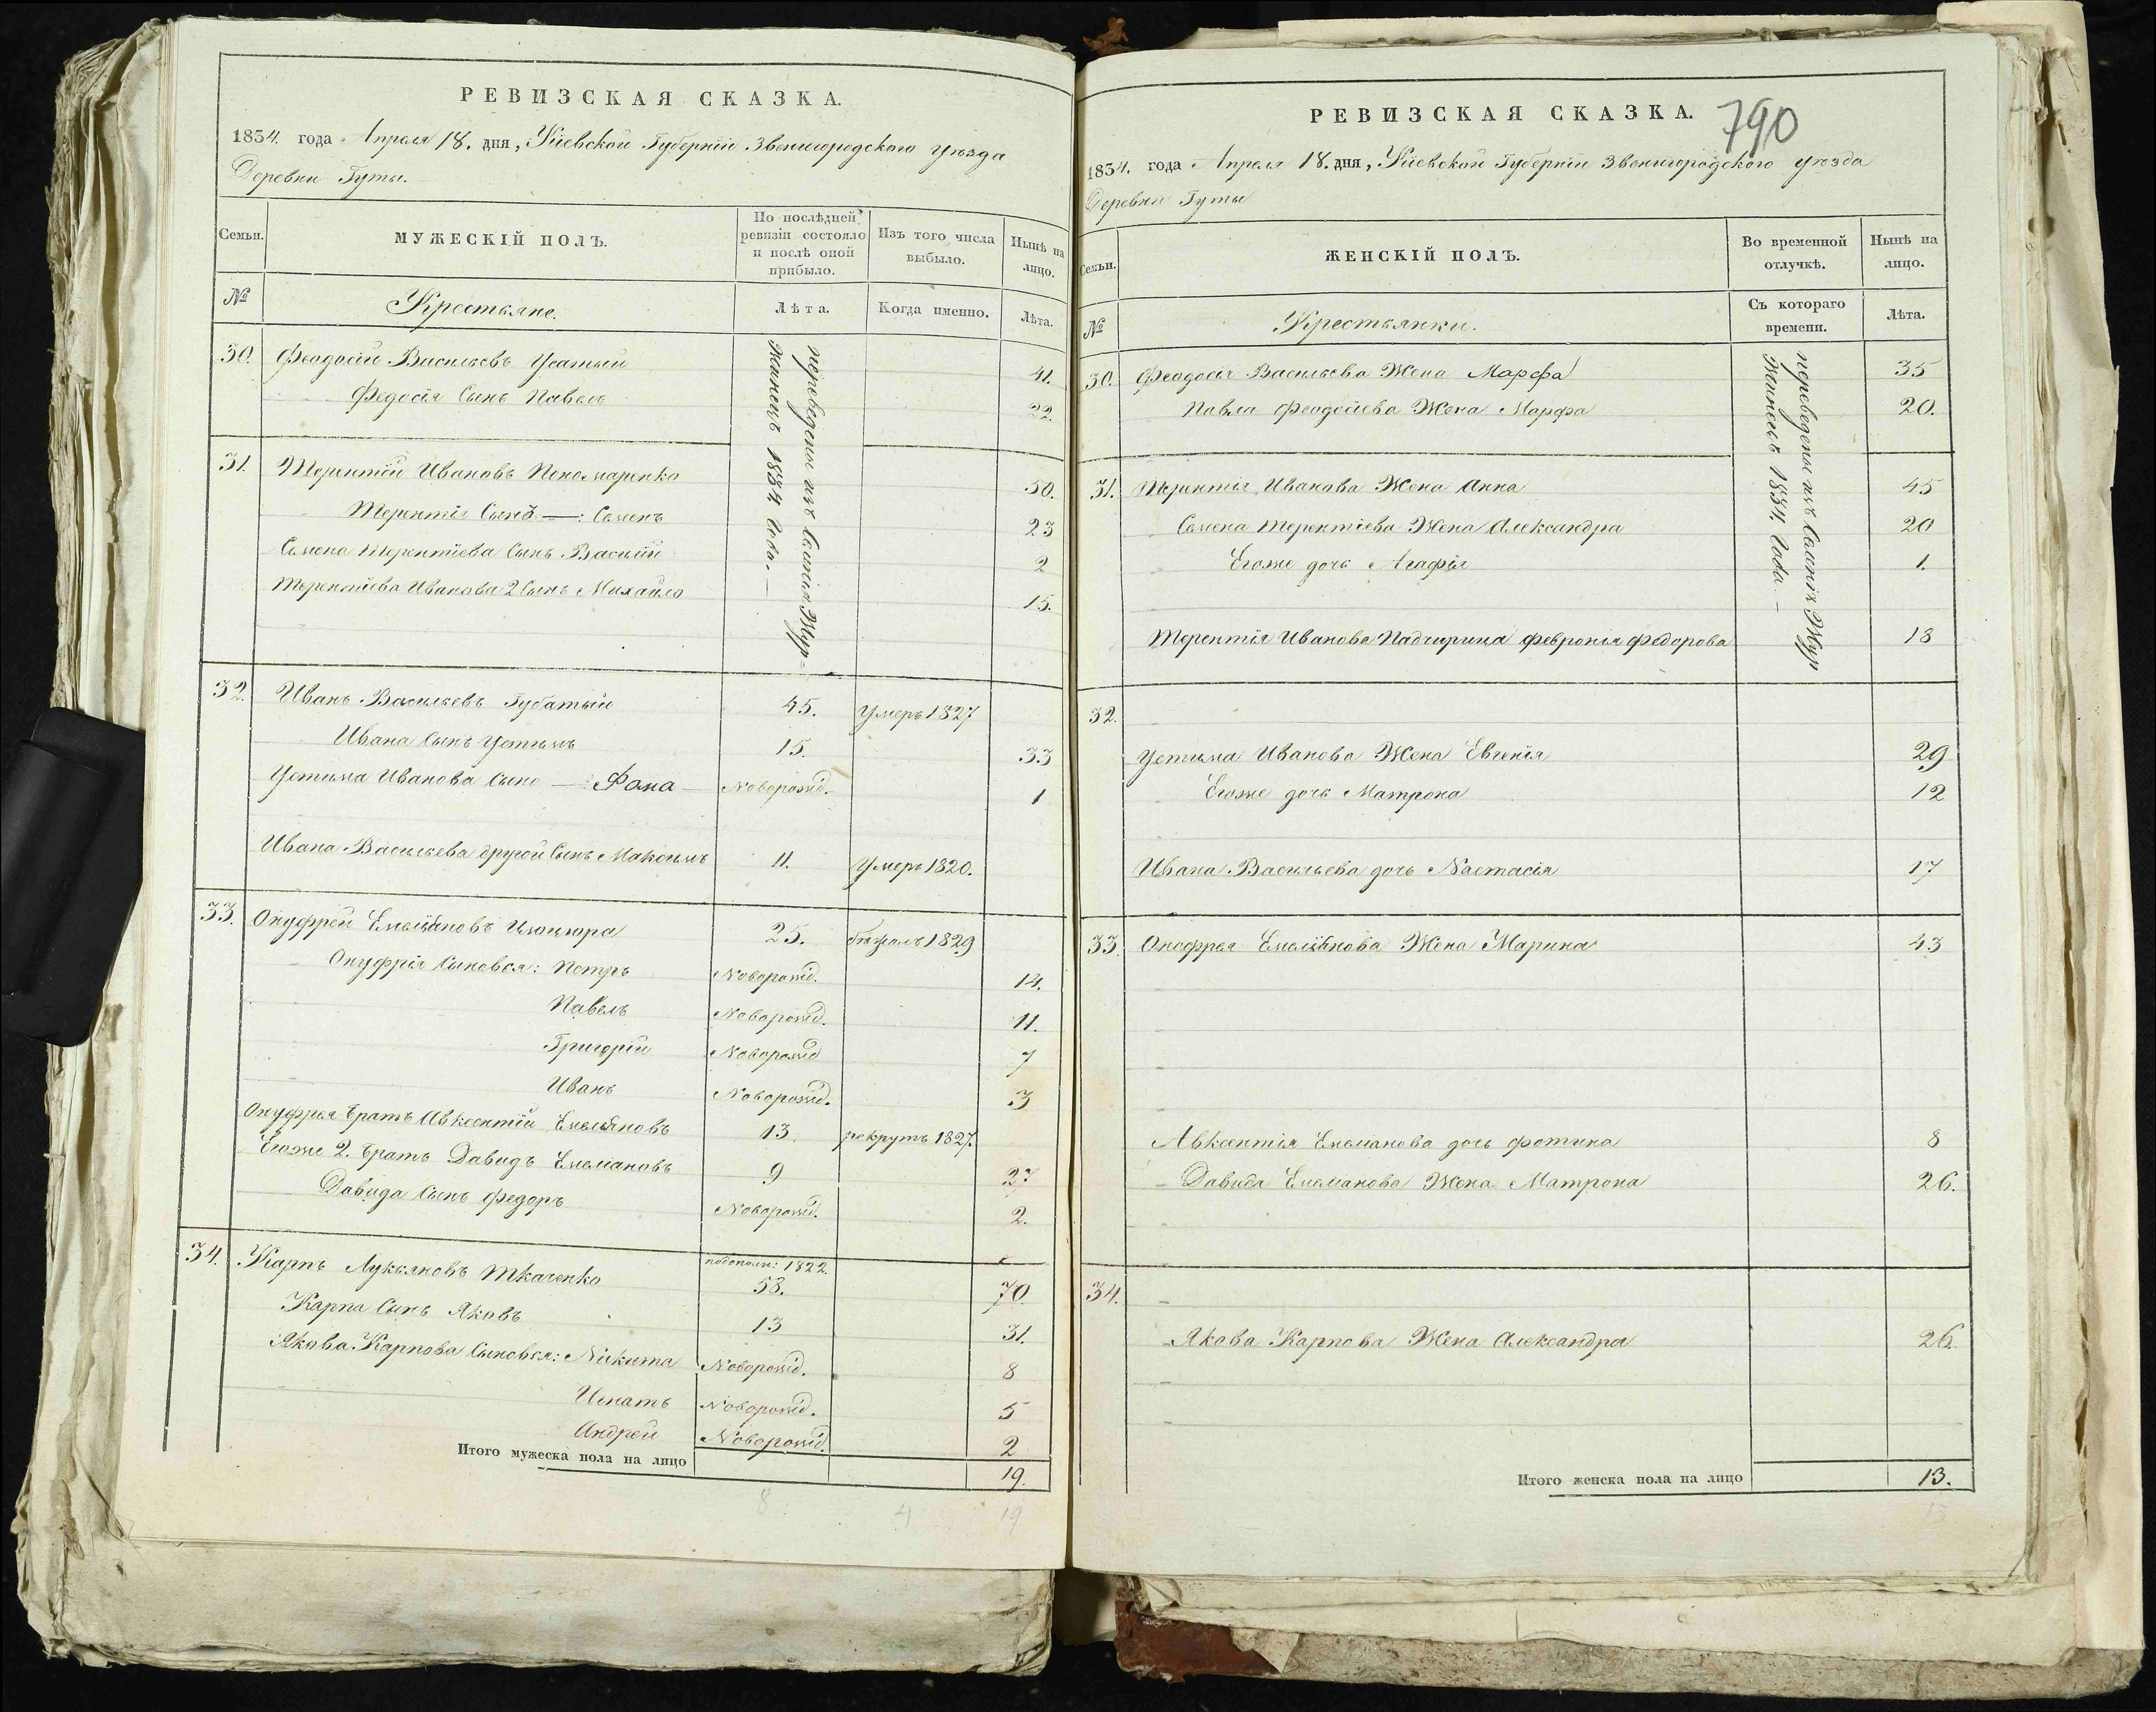 РЕВИЗСКАЯ СКАЗКА.
1834. года Апреля 18. дня, Кіевской Губерніи Звенигородского уезда
Деревни Гуты.
Семьи. МУЖЕСКІЙ ПОЛЪ. По послѣдней ревизіи состояло и послѣ оной прибыло. Изъ того числа выбыло. Нынѣ на лицо.
№ Крестьяне. Лѣта. Когда именно. Лѣта.
переведены изъ Селенія Жур=
жинецъ 1834 Года.—
30. Феодосій Васильевъ Усатый 41.
Федосія Сынъ Павелъ 22.
31. Терентій Ивановъ Пономаренко 50.
Терентія Сынъ —: Семенъ 23
Семена Терентіева Сынъ Василій 2
Терентіева Иванова 2 Сынъ Михайло 15.
32. Иванъ Васильевъ Губатый 45. Умеръ 1827
Ивана Сынъ Устимъ 15. 33
Устима Иванова Сынъ —: Фома — Новорожд. 1
Ивана Васильева другой Сынъ Максимъ 11. Умеръ 1820.
33. Онуфрей Емельяновъ Цюцюра 25. бѣжалъ 1829
Онуфрія Сыновья: Петръ Новорожд. 14.
Павелъ Новорожд. 11.
Григорій Новорожд 7
Иванъ Новорожд. 3
Онуфрья братъ Авксентій Емельяновъ 13. рекрутъ 1827.
Егоже 2. братъ Давидъ Емеліановъ 9 27
Давида Сынъ Федоръ Новорожд. 2.
34. Карпъ Лукьяновъ Ткаченко подополн: 1822. 58. 70.
Карпа Сынъ Яковъ 13 31.
Якова Карпова Сыновья: Никита Новорожд. 8
Игнатъ Новорожд. 5
Андрей Новорожд. 2
Итого мужеска пола на лицо 19.
8 4 19
РЕВИЗСКАЯ СКАЗКА. 790
1834. года Апреля 18. дня, Кіевской Губерніи Звенигородского уезда
Деревни Гуты
Семьи. ЖЕНСКІЙ ПОЛЪ. Во временной отлучкѣ. Нынѣ на лицо.
№ Крестьянки. Съ котораго времени. Лѣта.
переведены изъ Селенія Жур
жинецъ 1834. Года.—
30. Феодосія Васильева Жена Марфа 35
Павла Феодосіева Жена Марфа 20.
31. Терентія Иванова Жена Анна 45
Семена Терентіева Жена Александра 20
Егоже дочь Агафія 1.
Терентія Иванова Падчирица Февронья Федорова 18
32.
Устима Иванова Жена Евгенія 29
Егоже дочь Матрона 12
Ивана Васильева дочь Настасія 17
33. Онофрья Емельянова Жена Марина 43
Авксентія Емелианова дочь Фотина 8
Давида Емелианова Жена Матрона 26.
34.
Якова Карпова Жена Александра 26.
Итого женска пола на лицо 13.
13